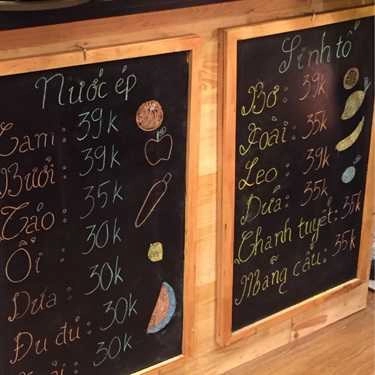 Nước ép
Cam: 39k
Bưởi: 39k
Táo: 35k
Ổi: 30k
Dưa: 30k
Đu đủ: 30k
: 30k
Sinh tố
Bơ: 39k
Xoài: 35k
Leo: 39k
Dứa: 35k
Chanh tuyết: 35k
Mãng cầu: 35k